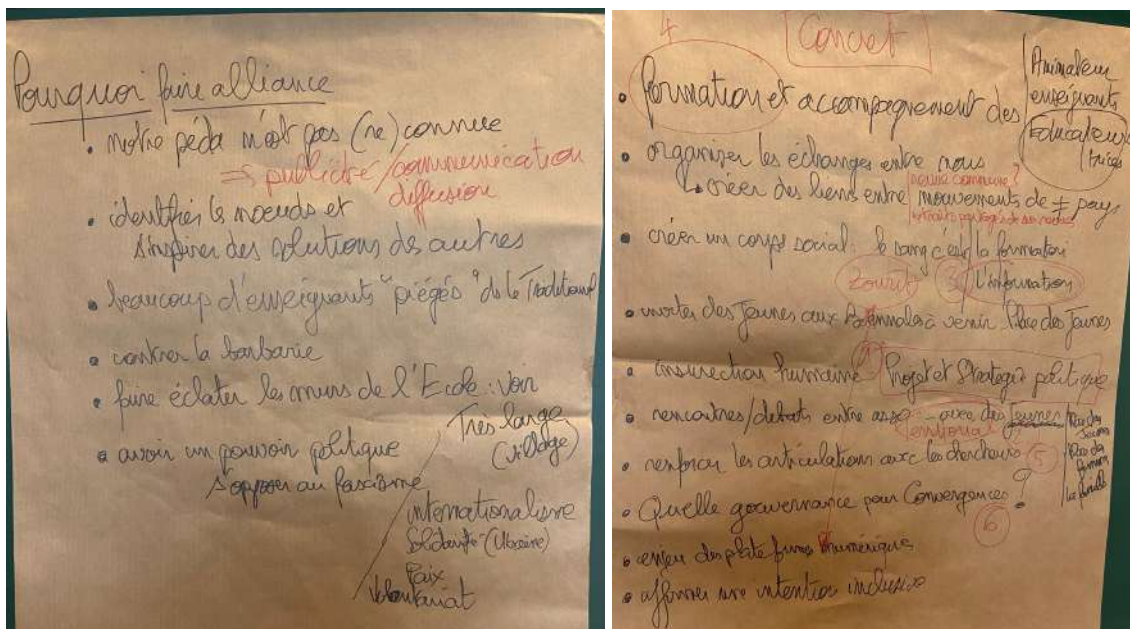 Pourquoi faire alliance
• notre péda n'est pas (re)connue
=> publicité/communication
diffusion
• identifier les nœuds et
s'inspirer des solutions des autres
• beaucoup d'enseignants "piégés" ds le Traditionnel
• contrer la barbarie
• faire éclater les murs de l'Ecole : voir
Très large
(village)
• avoir un pouvoir politique
s'opposer au fascisme
internationalisme
Solidarité (Ukraine)
Paix
Volontariat
4
Concret
• formation et accompagnement des
Animateurs
enseignants
Educateurs
trices
• organiser les échanges entre nous
↳ créer des liens entre mouvements de ≠ pays
revue commune ?
• créer un corps social : le sang c'est la formation
l'information
3
• inviter des Jeunes aux Biennales à venir. Place des Jeunes
1
• insurrection humaine
Projet et Stratégie politique
• rencontres/débats entre asso - avec des jeunes
territorial
Place des
Jeunes
Place des
femmes
La famille
• renforcer les articulations avec les chercheurs
5
• Quelle gouvernance pour Convergences ?
6
• enjeu des plate formes numériques
• affirmer une intention inclusive